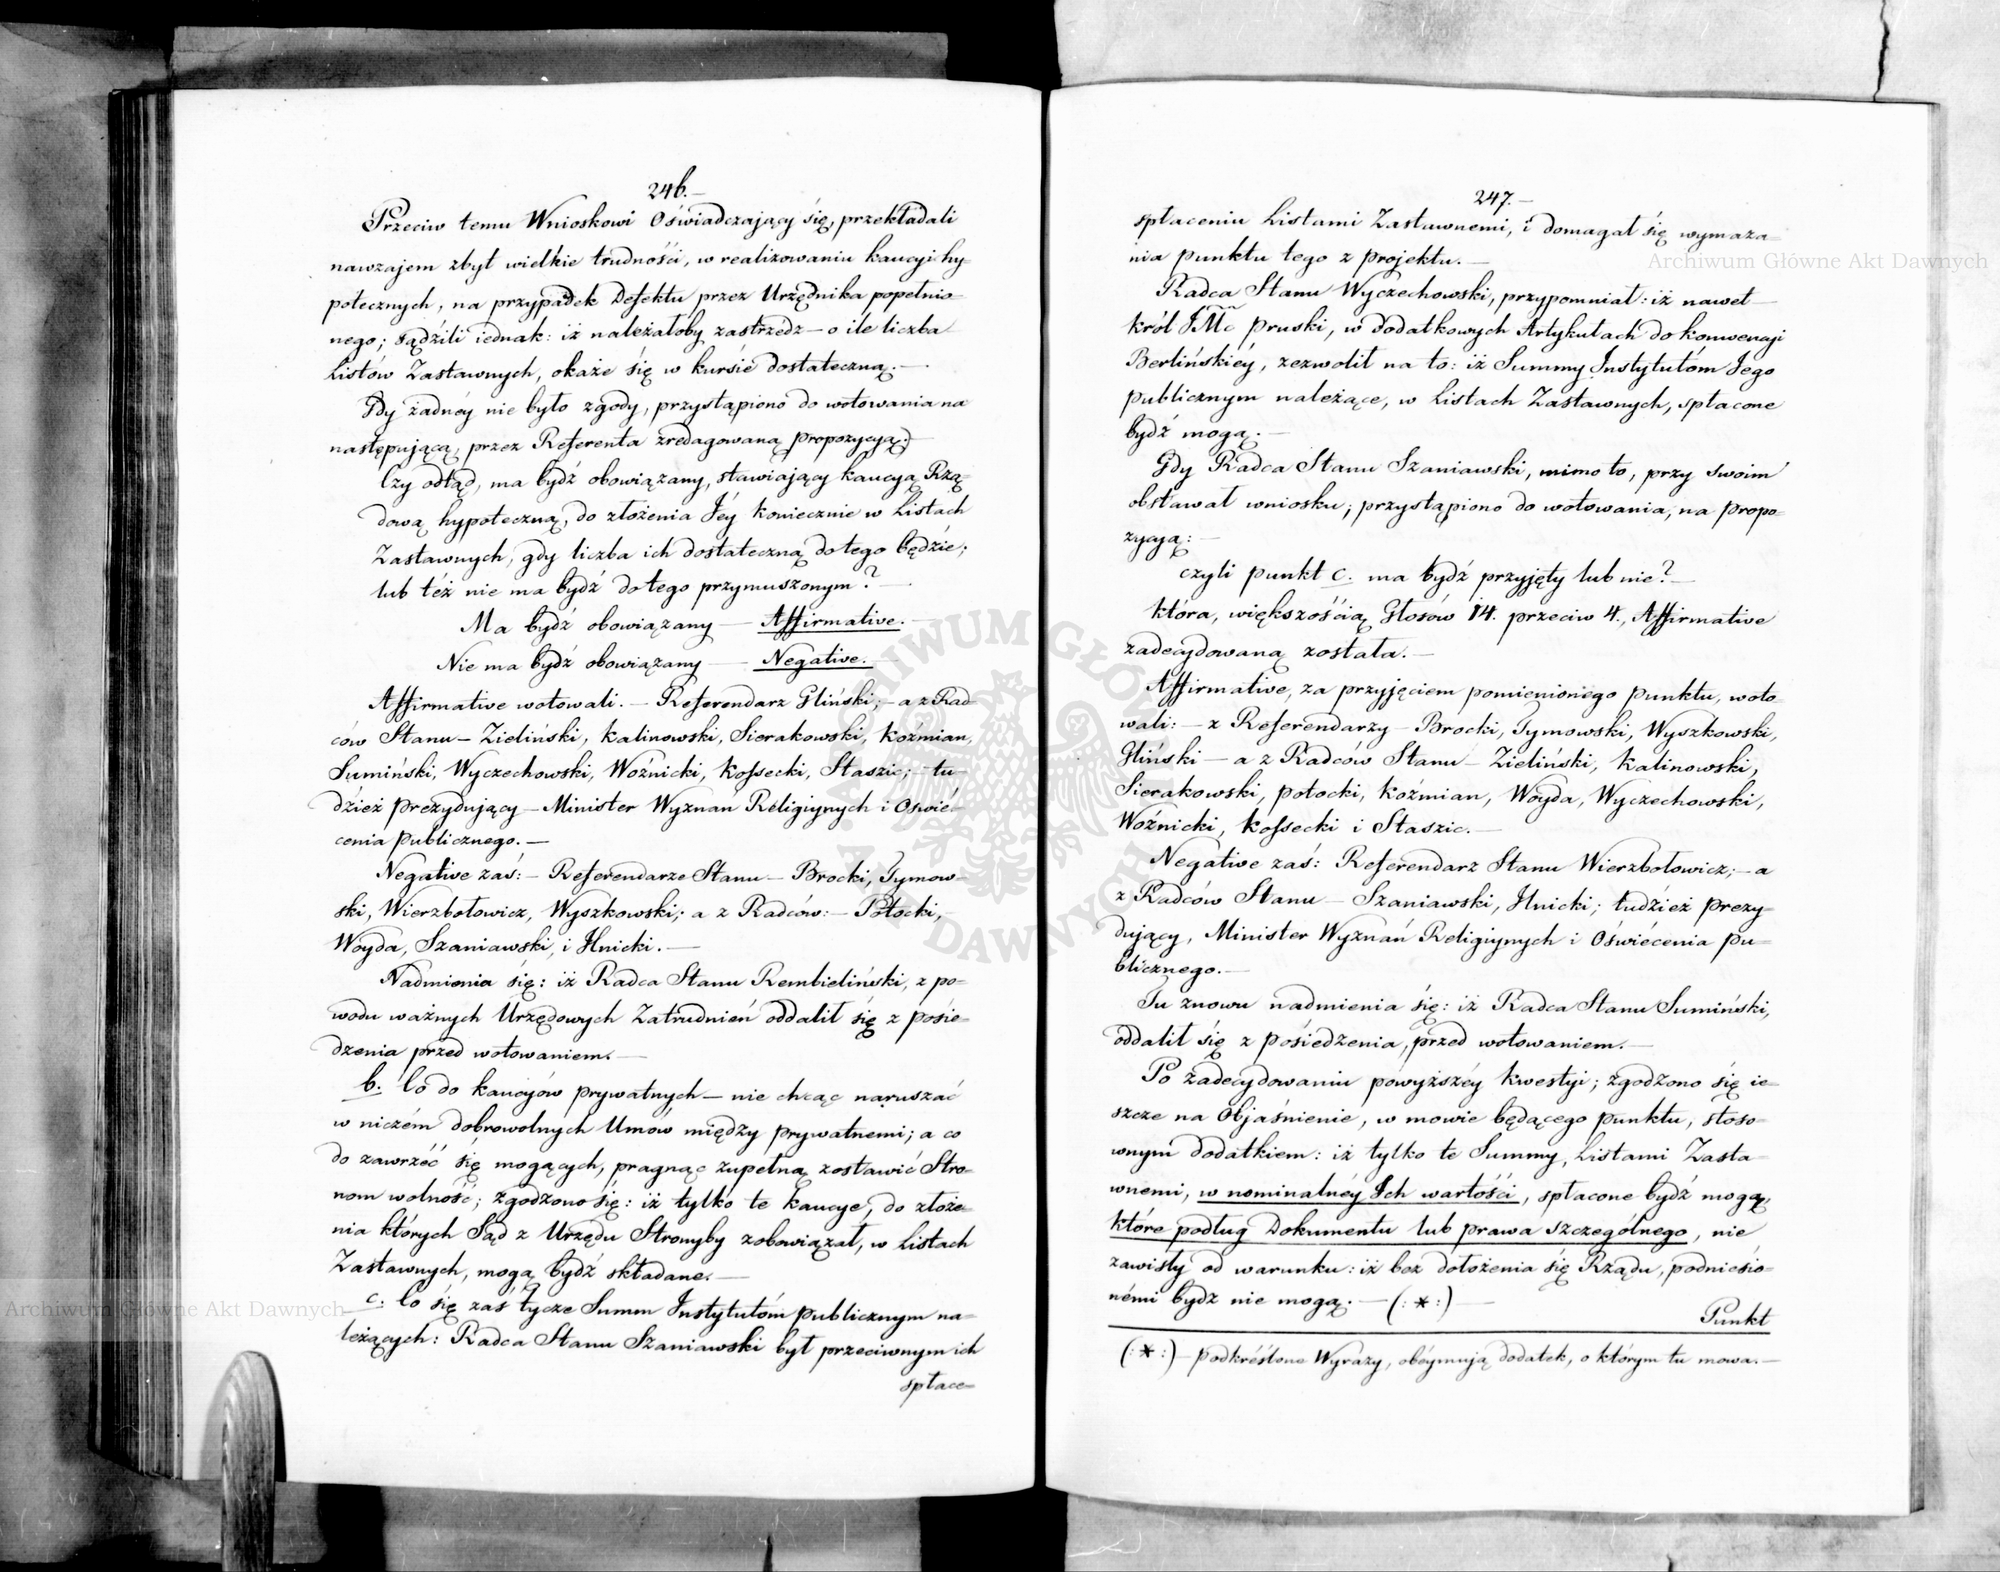 246.—
Przeciw temu Wnioskowi Oświadczający się, przekładali
nawzajem zbyt wielkie trudności, w realizowaniu kaucyi hy-
potecznych, na przypadek Defektu przez Urzędnika popełnio-
nego; sądzili iednak: iż należałoby zastrzedz — o ile liczba
Listów Zastawnych, okaże się w kursie dostateczną.—
Gdy żadnéy nie było zgody, przystąpiono do wotowania na
następującą, przez Referenta zredagowaną propozycyą:
Czy odtąd, ma bydź obowiązany, stawiający kaucyą Rzą-
dową hypoteczną, do złożenia Jéy koniecznie w Listach
Zastawnych, gdy liczba ich dostateczną do tego będzie;
lub téż nie ma bydź do tego przymuszonym?—
Ma bydź obowiązany — Affirmative.—
Nie ma bydź obowiązany — Negative.—
Affirmative wotowali.— Referendarz Gliński;— a z Rad-
ców Stanu — Zieliński, Kalinowski, Sierakowski, Koźmian,
Sumiński, Wyczechowski, Woźnicki, Kossecki, Staszic;— tu-
dzież Prezydujący — Minister Wyznan Religiynych i Oświé-
cenia Publicznego.—
Negative zaś:— Referendarze Stanu — Brocki, Tymow-
ski, Wierzbołowicz, Wyszkowski; a z Radców:— Potocki,
Woyda, Szaniawski, i Hnicki.—
Nadmienia się: iż Radca Stanu Rembieliński, z po-
wodu ważnych Urzędowych Zatrudnień oddalił się z posie-
dzenia przed wotowaniem.—
b. Co do kaucyów prywatnych — nie chcąc naruszać
w niczém dobrowolnych Umów między prywatnemi; a co
do zawrzéć się mogących, pragnąc zupełną zostawić Stro-
nom wolność; zgodzono się: iż tylko te kaucye, do złoże-
nia których Sąd z Urzędu Strony by zobowiązał, w Listach
Zastawnych, mogą bydź składane.—
c. Co się zaś tycze Summ Instytutóm publicznym na-
leżących: Radca Stanu Szaniawski był przeciwnym ich
spłace-
247.—
spłaceniu Listami Zastawnemi, i domagał się wymaza-
nia punktu tego z projektu.—
Radca Stanu Wyczechowski, przypomniał: iż nawet
król JMć pruski, w dodatkowych Artykułach do konwencyi
Berlińskiéy, zezwolił na to: iż Summy Instytutóm Jego
publicznym należące, w Listach Zastawnych, spłacone
bydź mogą.—
Gdy Radca Stanu Szaniawski, mimo to, przy swoim
obstawał wniosku; przystąpiono do wotowania, na propo-
zycyą:—
czyli punkt c. ma bydź przyjęty lub nie?—
która, większością Głosów 14. przeciw 4., Affirmative
zadecydowaną została.—
Affirmative, za przyjęciem pomienionego punktu, woto-
wali:— z Referendarzy — Brocki, Tymowski, Wyszkowski,
Gliński — a z Radców Stanu — Zieliński, Kalinowski,
Sierakowski, Potocki, Koźmian, Woyda, Wyczechowski,
Woźnicki, Kossecki i Staszic.—
Negative zaś: Referendarz Stanu Wierzbołowicz;— a
z Radców Stanu — Szaniawski, Hnicki; tudzież Prezy-
dujący, Minister Wyznań Religiynych i Oświécenia Pu-
blicznego.—
Tu znowu nadmienia się: iż Radca Stanu Sumiński,
oddalił się z posiedzenia, przed wotowaniem.—
Po zadecydowaniu powyższéy kwestyi; zgodzono się ie-
szcze na Objaśnienie, w mowie będącego punktu, stoso-
wnym dodatkiem: iż tylko te Summy, Listami Zasta-
wnemi, w nominalnéy Ich wartości, spłacone bydź mogą,
które podług Dokumentu lub prawa szczególnego, nie
zawisły od warunku: iż bez dołożenia się Rządu, podniesio-
némi bydź nie mogą.— (:*:) —
Punkt
(:*:) — podkréślone Wyrazy, obéymują dodatek, o którym tu mowa.—
Archiwum Główne Akt Dawnych
Archiwum Główne Akt Dawnych
ARCHIWUM GŁÓWNE AKT DAWNYCH